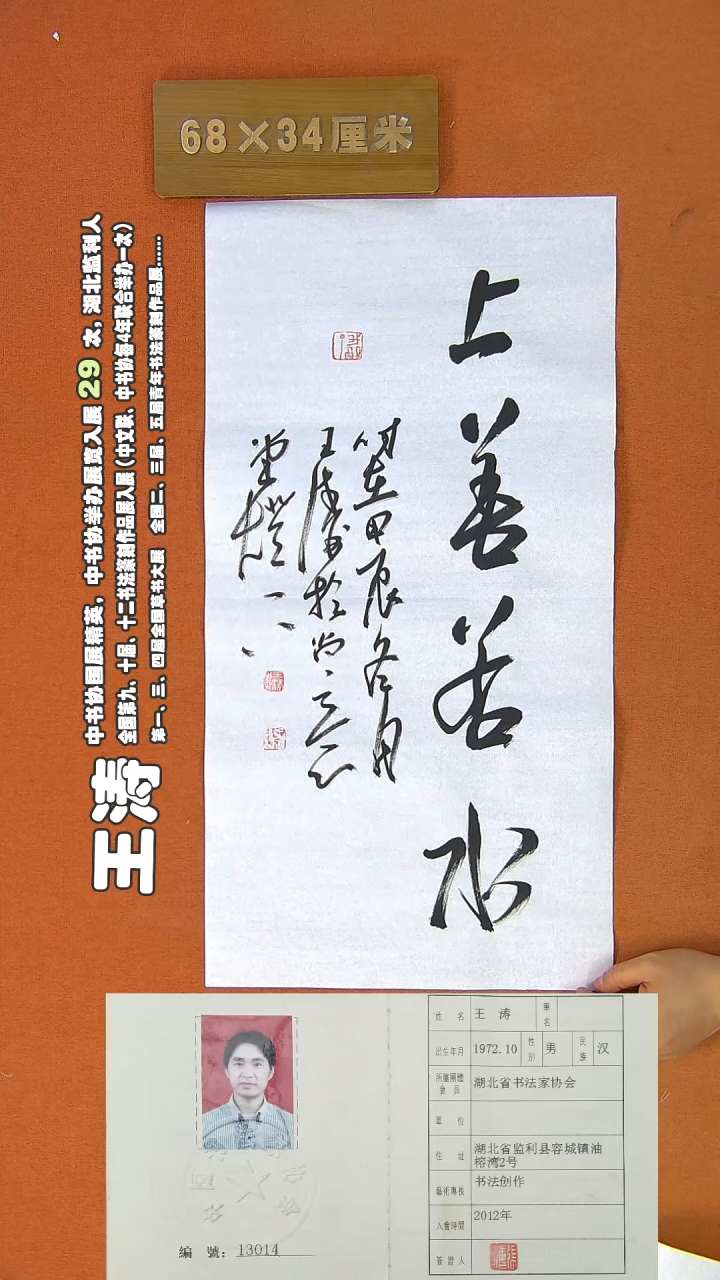 68×34厘米
上善若水
时在甲辰冬月
王涛书于尚一
堂灯下
王涛
中书协国展精英，中书协举办展览入展 29 次，湖北监利人
全国第九、十届、十二书法篆刻作品展入展（中文联、中书协每4年联合举办一次）
第一、三、四届全国草书大展 全国二、三届、五届青年书法篆刻作品展……
姓 名 王 涛 筆名
出生年月 1972.10 性别 男 民族 汉
所屬團體會員 湖北省书法家协会
單 位
住 址 湖北省监利县容城镇油榕湾2号
藝術專長 书法创作
入會時間 2012年
簽證人
编 號：13014